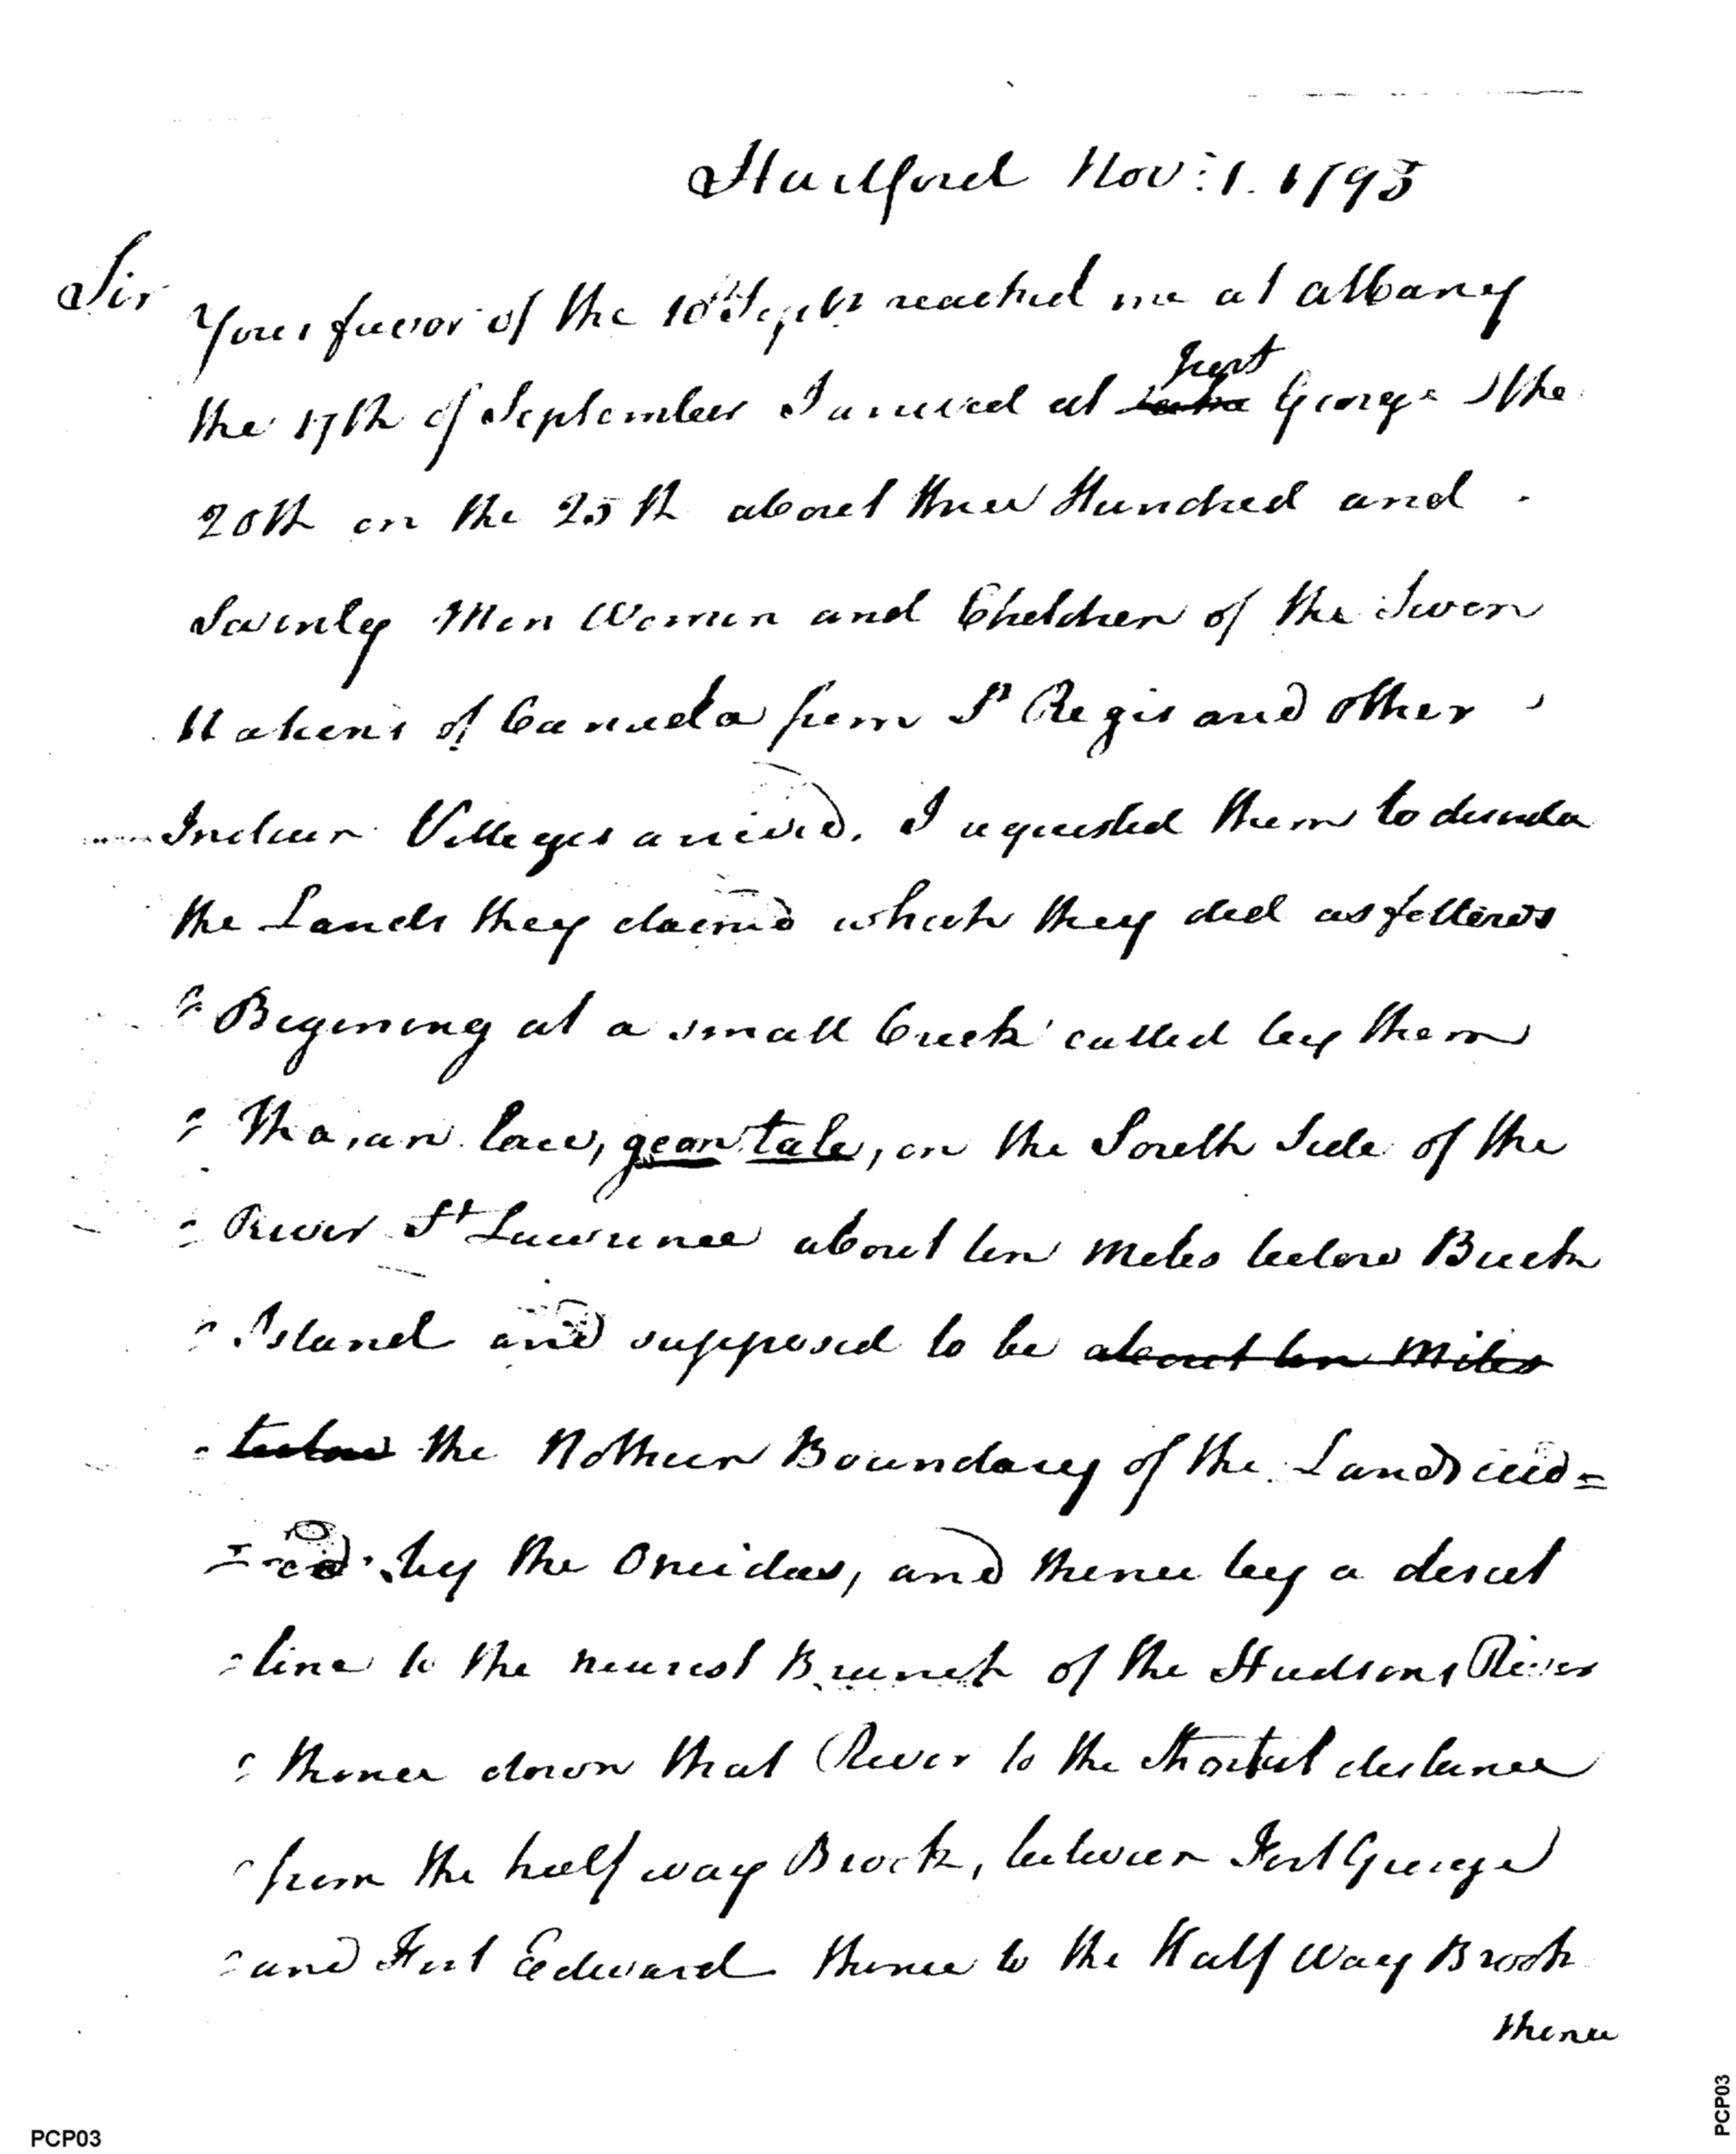 Hartford Nov: 1. 1795
Sir
Your favor of the 10th Septr reached me at albany
the 17th of September I arrived at Lake Fort George the
20th on the 25th about three Hundred and
Seventy Men Women and Children of the Seven
Nations of Canada from St Regis and other
Indian Villages arrived. I requested them to
the Lands they claim'd which they did as follows
" Begining at a small Creek called by them
" on the South Side of the
" River St Lawrence about ten Miles below Buck
" Island and supposed to be about ten Miles
" below the Nothern Boundary of the Lands ceed=
=ed by the Oneidas, and thence by a direct
" line to the nearest Branch of the Hudsons River
" thence down that River to the Shortest distance
" from the half way Brook, between Fort George
" and Fort Edward thence to the Half Way Brook
thence
PCP03
PCP03